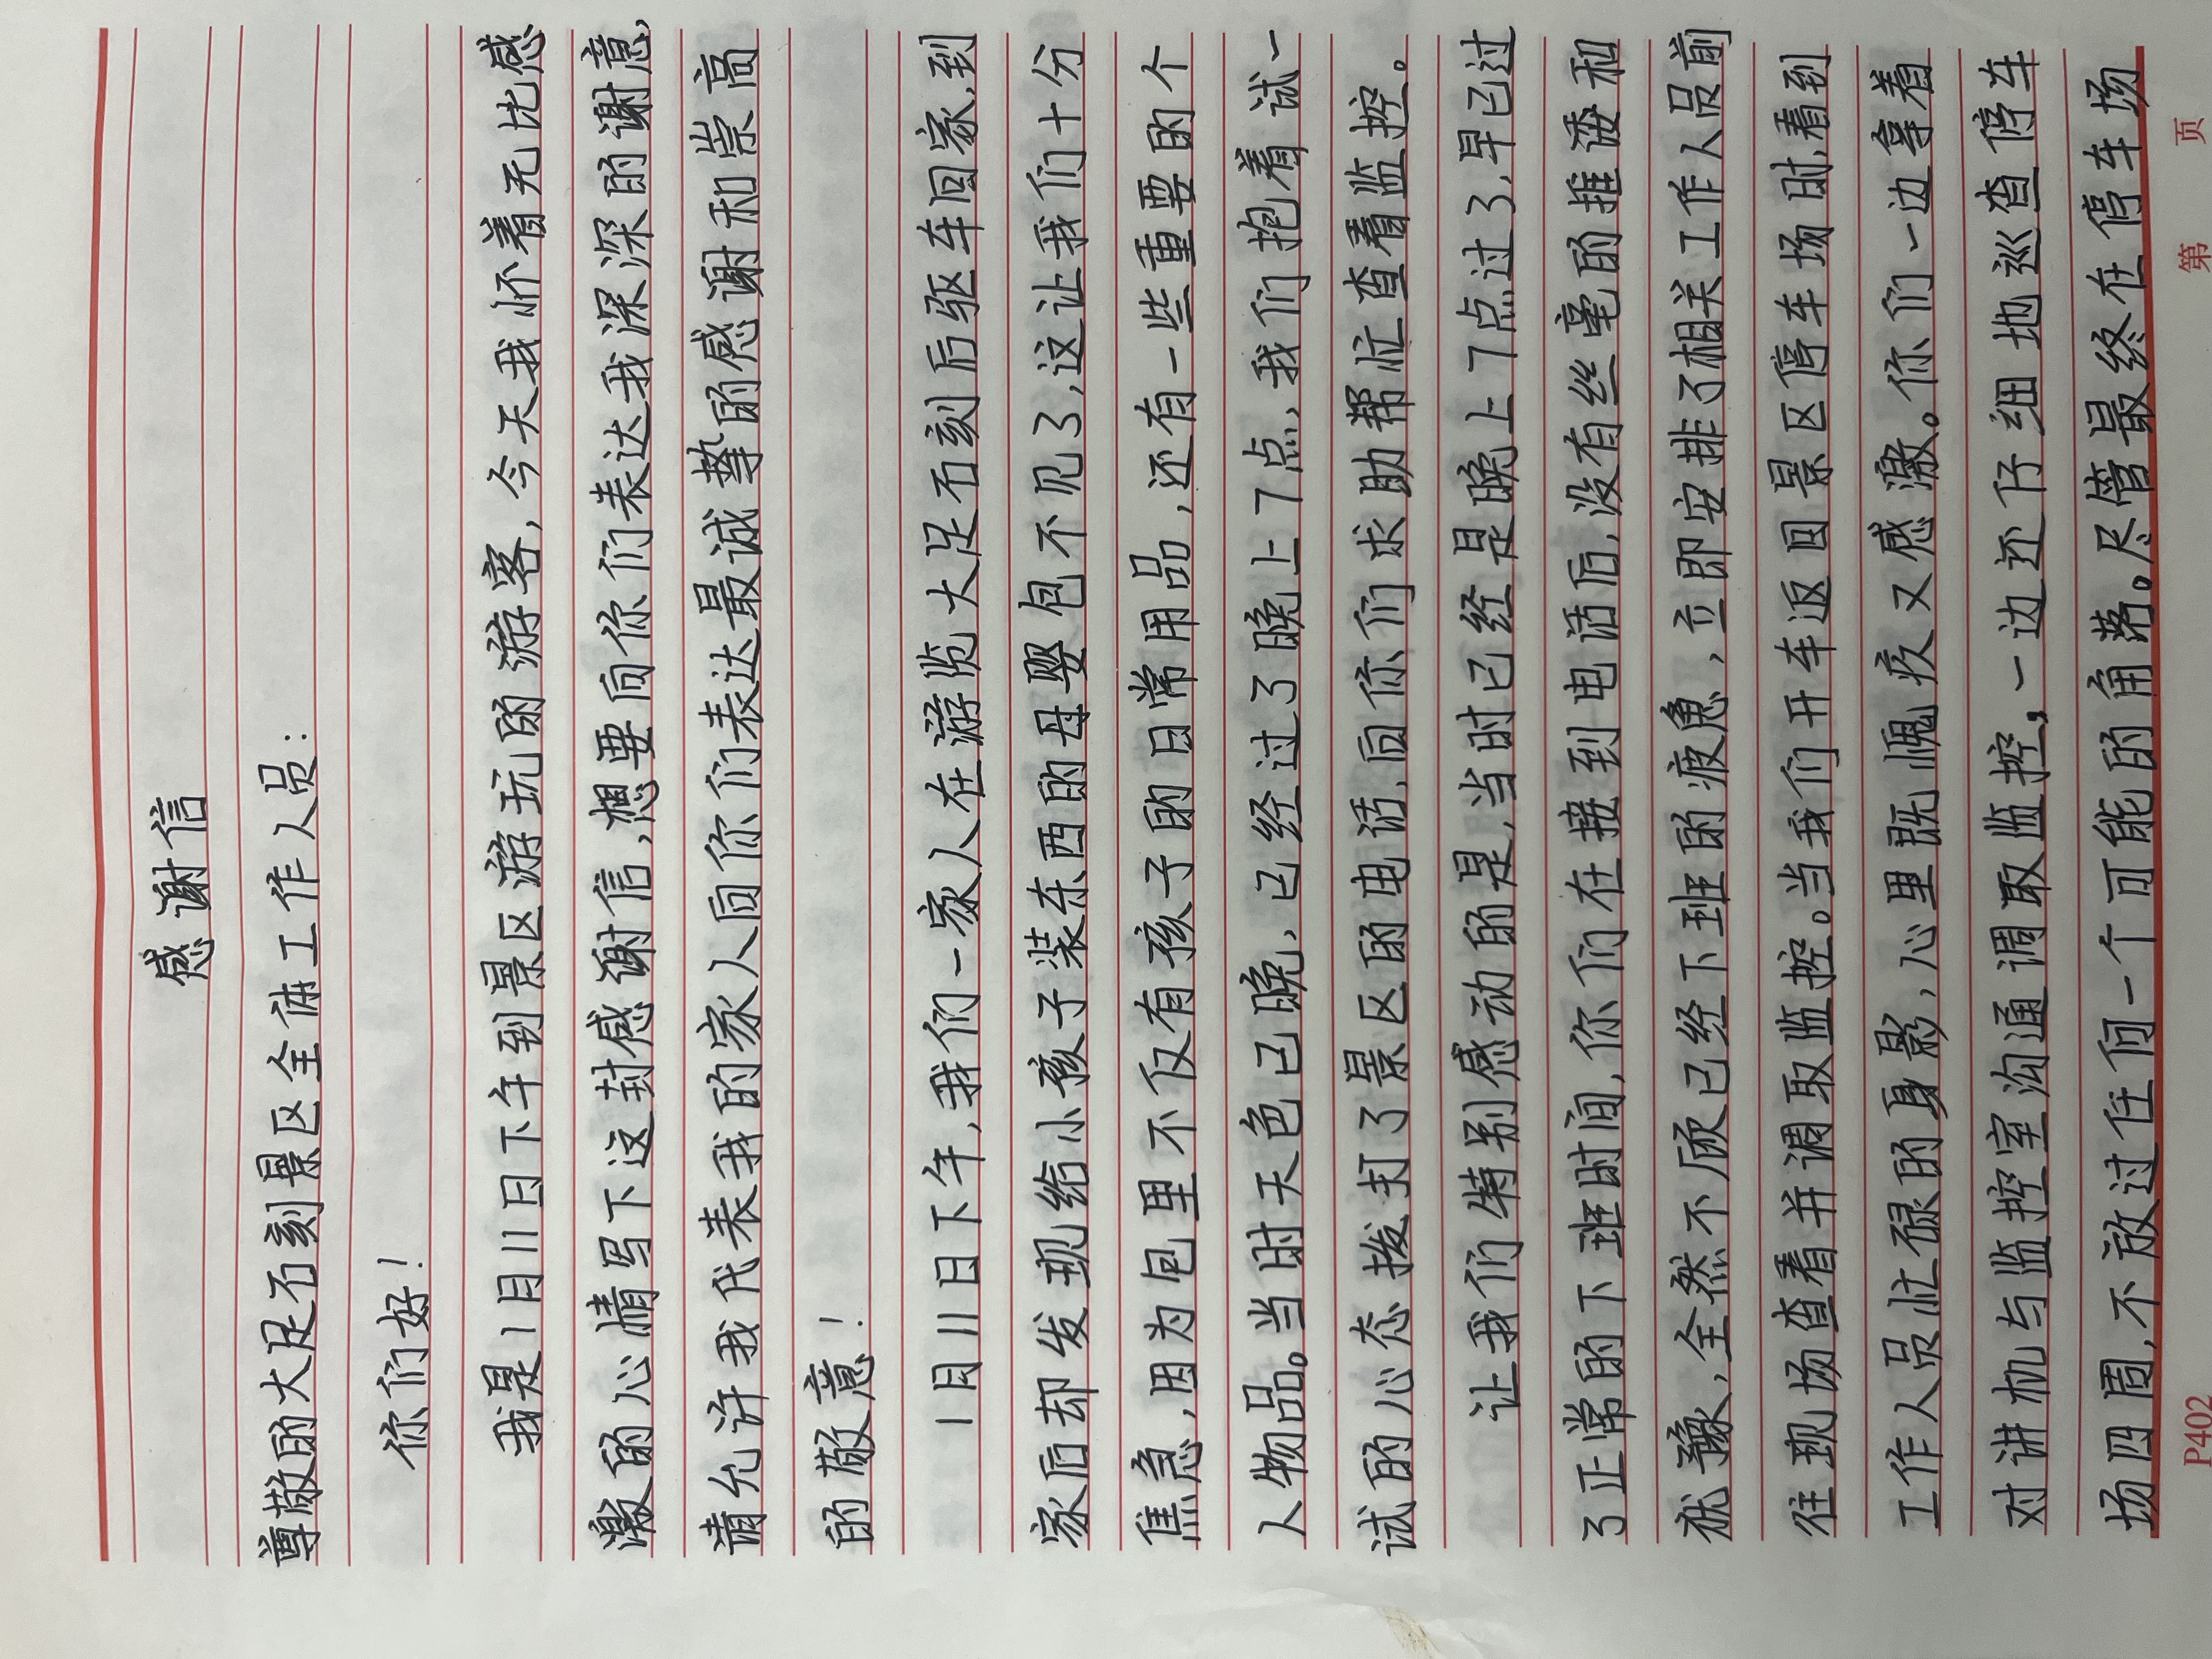 感谢信
尊敬的大足石刻景区全体工作人员：
你们好！
我是1月11日下午到景区游玩的游客，今天我怀着无比感
激的心情写下这封感谢信，想要向你们表达我深深的谢意，
请允许我代表我的家人向你们表达最诚挚的感谢和崇高
的敬意！
1月11日下午，我们一家人在游览大足石刻后驱车回家，到
家后却发现给小孩子装东西的母婴包不见了，这让我们十分
焦急，因为包里不仅有孩子的日常用品，还有一些重要的个
人物品。当时天色已晚，已经过了晚上7点，我们抱着试一
试的心态拨打了景区的电话，向你们求助帮忙查看监控。
让我们特别感动的是，当时已经是晚上7点过了，早已过
了正常的下班时间，你们在接到电话后，没有丝毫的推诿和
犹豫，全然不顾已经下班的疲惫，立即安排了相关工作人员前
往现场查看并调取监控。当我们开车返回景区停车场时，看到
工作人员忙碌的身影，心里既愧疚又感激。你们一边拿着
对讲机与监控室沟通调取监控，一边还仔细地巡查停车
场四周，不放过任何一个可能的角落。尽管最终在停车场
P402 第 页